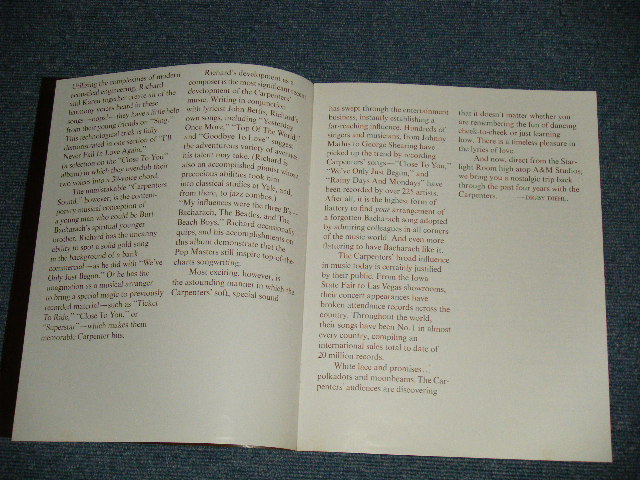 Utilizing the complexities of modern
recording engineering, Richard
and Karen together were all of the
harmony voices heard in these
songs
they have a little help
from their young friends on "Sing."
This technological trick is fully
demonstrated in one section of "I'll
Never Fall In Love Again,"
(a selection on the "Close To You"
album) in which they overdub their
two voices into a
voice chord.
The unmistakable "Carpenters
Sound," however, is the contem-
porary musical conception of
a young man who could be Burt
Bacharach's spiritual younger
brother. Richard has the uncanny
ability to spot a solid gold song
in the background of a bank
commercial—as he did with "We've
Only Just Begun." Or he has the
imagination as a musical arranger
to bring a special magic to previously
recorded material—such as "Ticket
To Ride," "Close To You," or
"Superstar"—which makes them
memorable Carpenter hits.
Richard's development as a
composer is the most significant recent
development of the Carpenters'
music. Writing in conjunction
with lyricist John Bettis, Richard's
own songs, including "Yesterday
Once More," "Top Of The World,"
and "Goodbye To Love" suggest
the adventurous variety of avenues
his talent may take. (Richard is
also an accomplished pianist whose
precocious abilities took him
into classical studies at Yale, and,
from there, to jazz combos.)
"My influences were the three B's—
Bacharach, The Beatles, and The
Beach Boys," Richard occasionally
quips, and his accomplishments on
this album demonstrate that the
Pop Masters still inspire top-of-the-
charts songwriting.
Most exciting, however, is
the astounding manner in which the
Carpenters' soft, special sound
has swept through the entertainment
business, instantly establishing a
far-reaching influence. Hundreds of
singers and musicians, from Johnny
Mathis to George Shearing have
picked up the trend by recording
Carpenters' songs—"Close To You,"
"We've Only Just Begun," and
"Rainy Days And Mondays" have
been recorded by over 225 artists.
After all, it is the highest form of
flattery to find your arrangement of
a forgotten Bacharach song adopted
by admiring colleagues in all corners
of the music world. And even more
flattering to have Bacharach like it.
The Carpenters' broad influence
in music today is certainly justified
by their public. From the Iowa
State Fair to Las Vegas showrooms,
their concert appearances have
broken attendance records across the
country. Throughout the world,
their songs have been No. 1 in almost
every country, compiling an
international sales total to date of
20 million records.
White lace and promises...
polkadots and moonbeams. The Car-
penters' audiences are discovering
that it doesn't matter whether you
are remembering the fun of dancing
cheek-to-cheek or just learning
how. There is a timeless pleasure in
the lyrics of love.
And now, direct from the Star-
light Room high atop A&M Studios,
we bring you a nostalgic trip back
through the past four years with the
Carpenters. —DIGBY DIEHL.